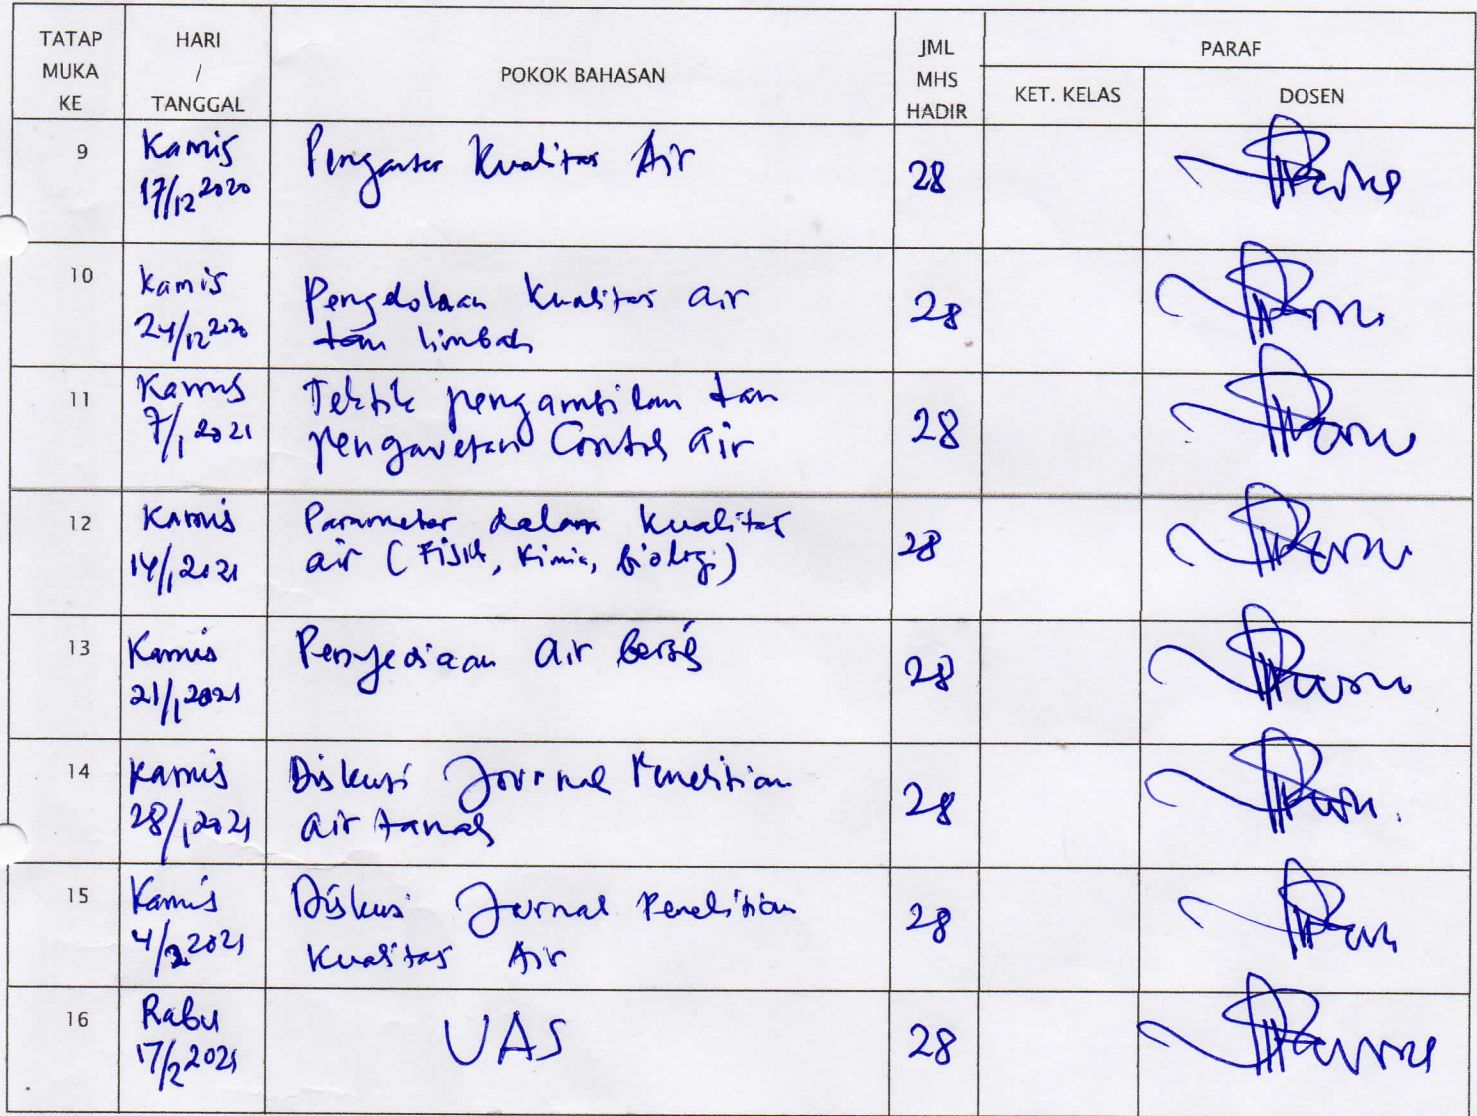 TATAP MUKA KE HARI / TANGGAL POKOK BAHASAN JML MHS HADIR PARAF
KET. KELAS DOSEN
9 Kamis 17/12 2020 Pengantar Kualitas Air 28
10 Kamis 24/12 2020 Pengelolaan Kualitas air
dan limbah 28
11 Kamis 7/1 2021 Teknik pengambilan dan
pengawetan Contoh air 28
12 Kamis 14/1 2021 Parameter dalam kualitas
air (Fisik, Kimia, biologi) 28
13 Kamis 21/1 2021 Penyediaan air bersih 28
14 Kamis 28/1 2021 Diskusi Journal Penelitian
air tanah 28
15 Kamis 4/2 2021 Diskusi Jurnal Penelitian
Kualitas Air 28
16 Rabu 17/2 2021 UAS 28